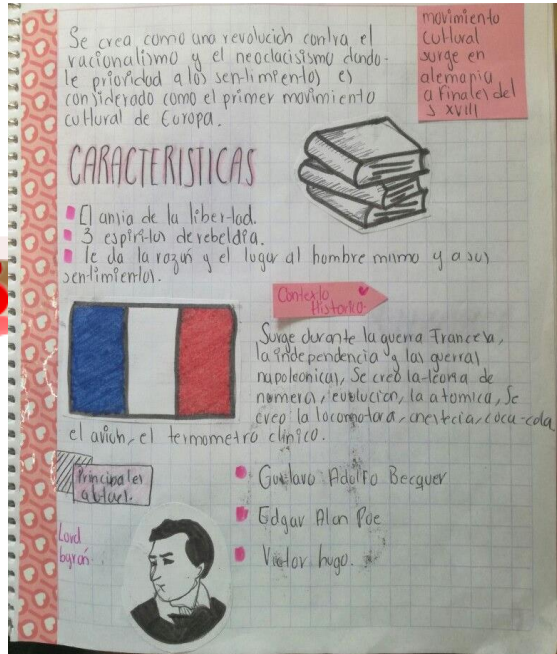 Se crea como una revolución contra el
racionalismo y el neoclacisismo dando-
le prioridad a los sentimientos es
considerado como el primer movimiento
cultural de Europa.
movimiento
cultural
surge en
alemania
a finales del
s xviii
CARACTERISTICAS
El ansia de la libertad.
3 espiritus de rebeldia.
le da la razón y el lugar al hombre mismo y a sus
sentimientos.
Contexto
Historico.
Surge durante la guerra Francesa,
la independencia y las guerras
napoleonicas, Se creó la teoria de
numera, evolucion, la atomica, Se
creo la locomotora, anestecia, coca-cola
el avion, el termometro clinico.
Principales
autores.
Gustavo Adolfo Becquer
Edgar Alan Poe
Victor hugo.
Lord
byron